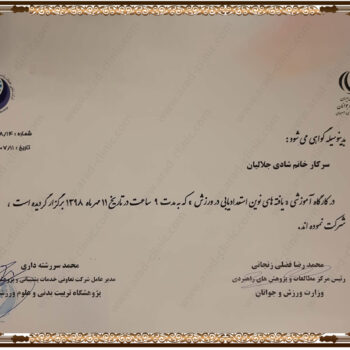 شماره : ۸/۱۴
تاریخ : ۰۷/۱۱
بدینوسیله گواهی می شود :
سرکار خانم شادی جلالیان
در کارگاه آموزشی « یافته های نوین استعدادیابی در ورزش » که به مدت ۹ ساعت در تاریخ ۱۱ مهرماه ۱۳۹۸ برگزار گردیده است ،
شرکت نموده اند.
محمد رضا فضلی زنجانی
رئیس مرکز مطالعات و پژوهش های راهبردی
وزارت ورزش و جوانان
محمد سررشته داری
مدیر عامل شرکت تعاونی خدمات پشتیبانی و
پژوهشگاه تربیت بدنی و علوم